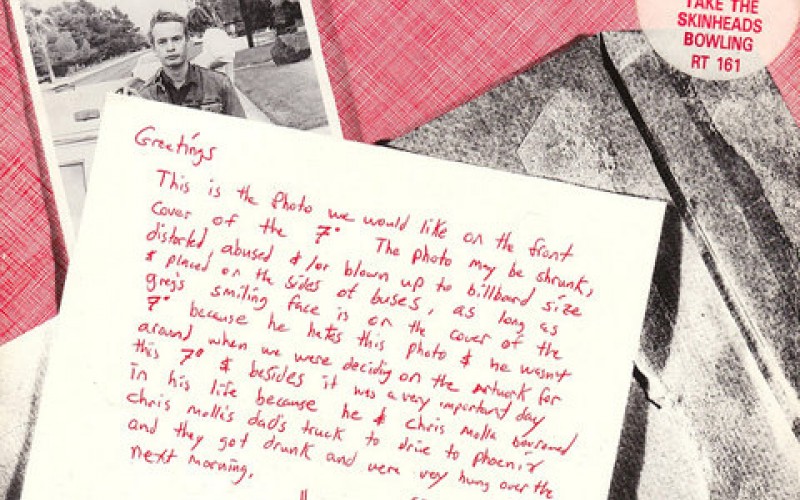 TAKE THE
SKINHEADS
BOWLING
RT 161
Greetings
This is the photo we would like on the front
cover of the 7" The photo may be shrunk,
distorted, abused &/or blown up to billboard size
& placed on the sides of buses, as long as
greg's smiling face is on the cover of the
7" because he hates this photo & he wasn't
around when we were decidig on the artwork for
this 7" & besides it was a very important day
in his life because he & Chris Molla borrowed
Chris molla's dad's truck to drive to phoenix
and they got drunk and were very hung over the
next morning.